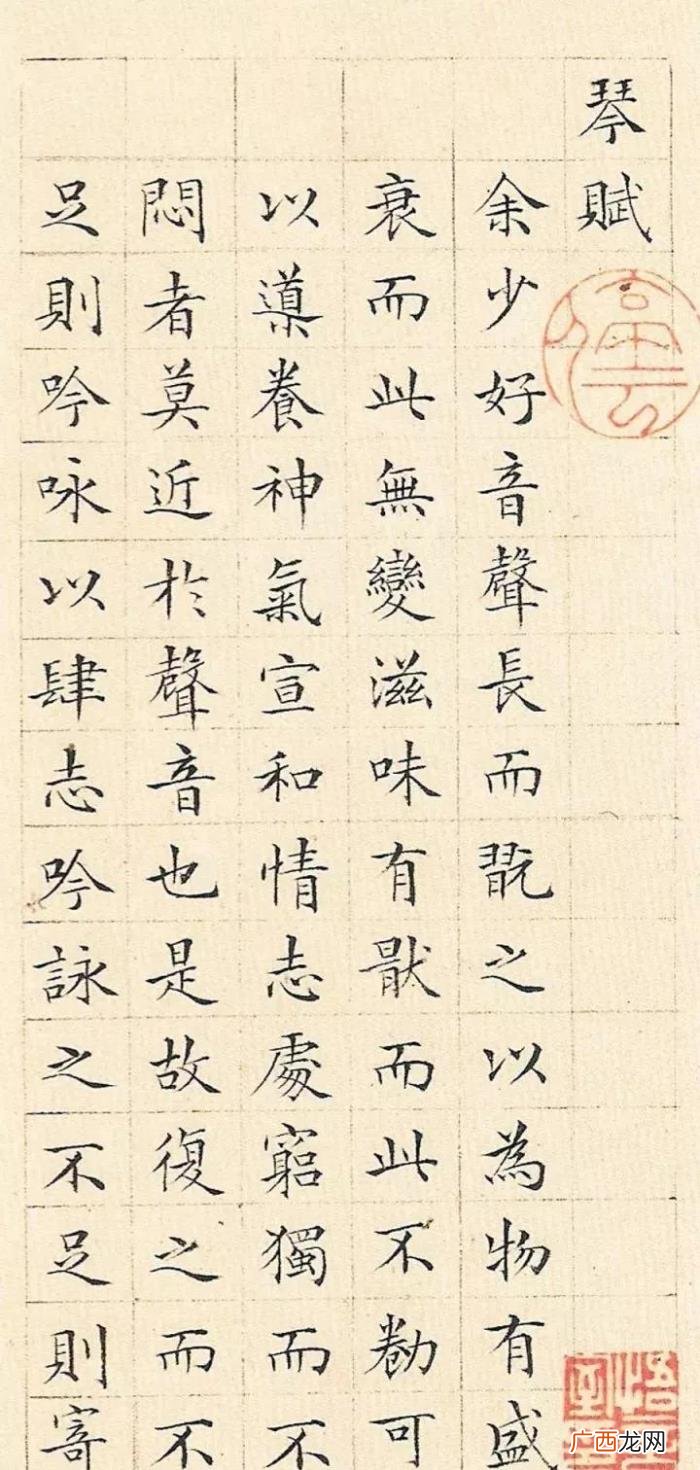 琴賦
余少好音聲長而翫之以為物有盛
衰而此無變滋味有猒而此不勌可
以導養神氣宣和情志處窮獨而不
悶者莫近於聲音也是故復之而不
足則吟咏以肆志吟詠之不足則寄
广西龙网